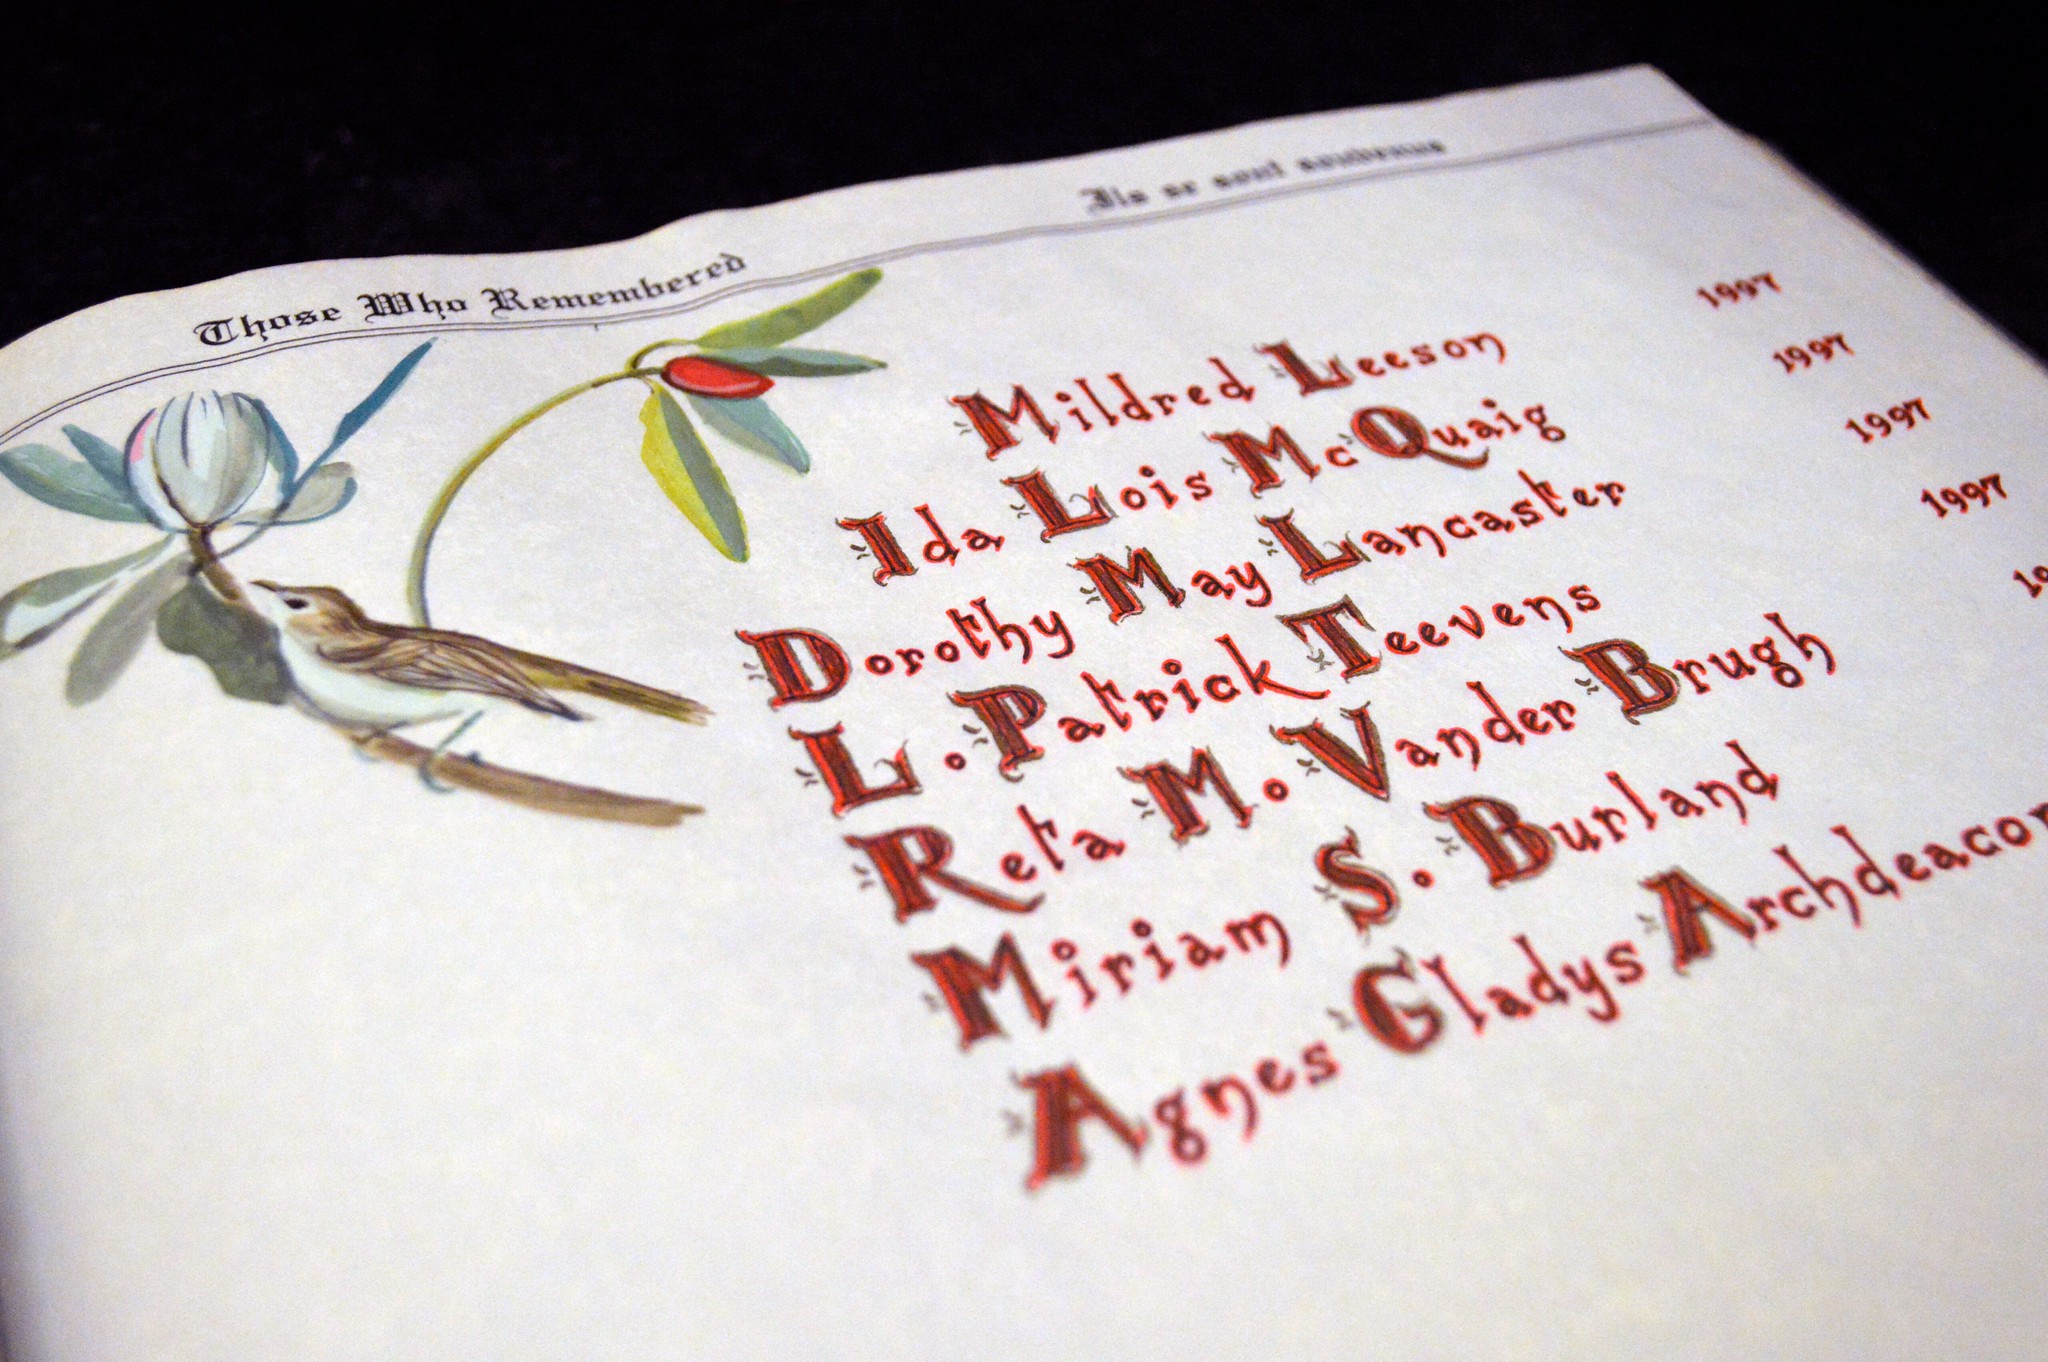 Those Who Remembered Ils se sont souvenus
Mildred Leeson 1997
Ida Lois McQuaig 1997
Dorothy May Lancaster 1997
L. Patrick Teevens 1997
Reta M. Vander Brugh
Miriam S. Burland
Agnes Gladys Archdeacon